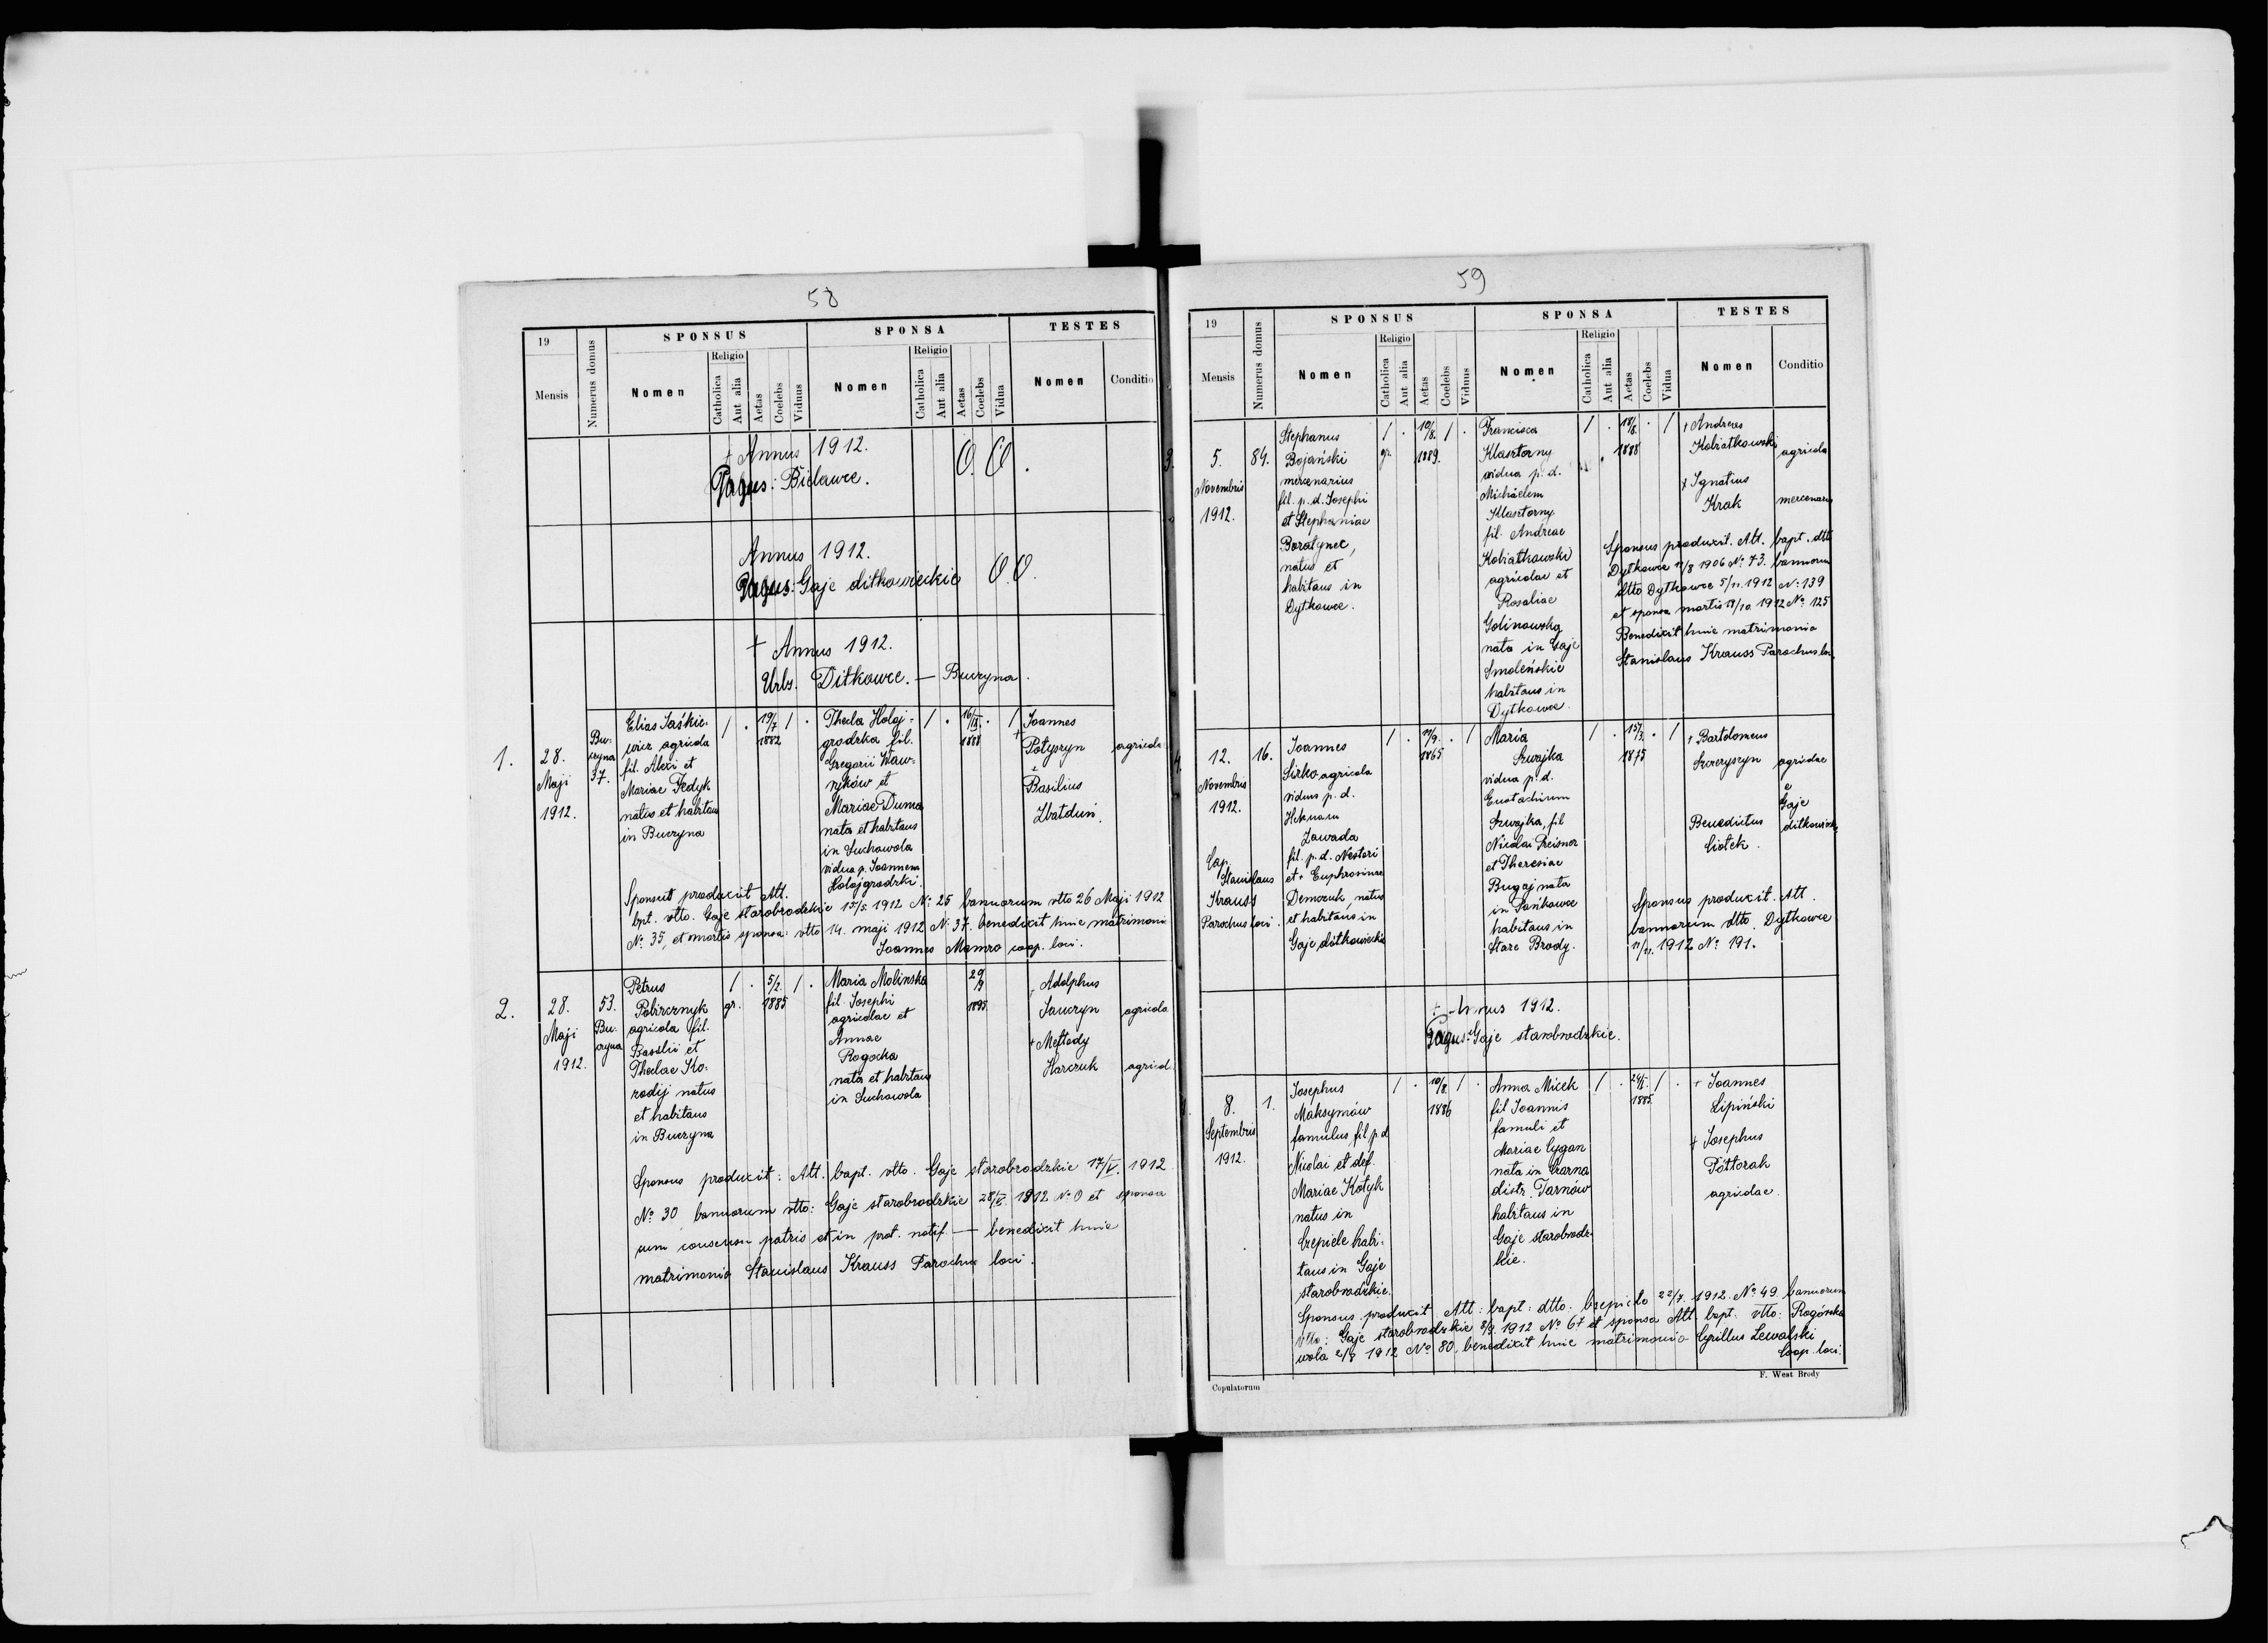 58
19
Mensis
Numerus domus
SPONSUS
Nomen
Religio
Catholica
Aut alia
Aetas
Coelebs
Viduus
SPONSA
Nomen
Religio
Catholica
Aut alia
Aetas
Coelebs
Vidua
TESTES
Nomen
Conditio
+ Annus 1912.
Pagus: Bielawce. O.O.
Annus 1912.
Pagus: Gaje ditkowieckie O.O.
+ Annus 1912.
Urbs. Ditkowce. — Buczyna.
1.
28.
Maji
1912.
Bu-
czyna
37.
Elias Saśkie-
wicz agricola
fil. Alexi et
Mariae Fedyk
natus et habitans
in Buczyna
/ . 19/7 1882 / .
Thecla Hołoj-
grodzka fil.
Gregorii Waw-
nyków et
Mariae Duma
nata et habitans
in Suchowola
vidua p. Joannem
Hołojgrodzki.
/ . 16/IX 1888 . /
Joannes
+ Potyszyn agricola
+ Basilius
Zbatduń.
Sponsus produxit Att.
bpt. dtto. Gaje starobrodzkie 15/5 1912 No 25 bannorum dtto 26 Maji 1912
No 35, et mortis sponsa: dtto 14. maji 1912 No 37. benedixit huic matrimonio
Joannes Mamro coop. loci.
2.
28.
Maji
1912.
53.
Bu-
czyna
Petrus
Polircznyk
agricola fil.
Basilii et
Theclae Ko-
radij natus
et habitans
in Buczyna
/ gr. . 5/2 1885 / .
Maria Molinska
fil. Josephi
agricolae et
Annae
Rogocka
nata et habitans
in Suchowola
29/9 1895
Adolphus
Sawczyn agricola
+ Mettody
Harczuk agricol.
Sponsus produxit: Att. bapt. dtto. Gaje starobrodzkie 17/V. 1912
No 30 bannorum dtto: Gaje starobrodzkie 28/V 1912 No 0 et sponsa
cum consensu patris et in prot. notif. — benedixit huic
matrimonio Stanislaus Krauss Parochus loci.
59
19
Mensis
Numerus domus
SPONSUS
Nomen
Religio
Catholica
Aut alia
Aetas
Coelebs
Viduus
SPONSA
Nomen
Religio
Catholica
Aut alia
Aetas
Coelebs
Vidua
TESTES
Nomen
Conditio
3.
5.
Novembris
1912.
84.
Stephanus
Bojański
mercenarius
fil. p. d. Josephi
et Stephaniae
Boratynec,
natus et
habitans in
Dytkowce.
/ gr. . 10/8. 1889. / .
Francisca
Klasztorny
vidua p. d.
Michaelem
Klasztorny
fil. Andreae
Kobiatkowski
agricolae et
Rosaliae
Golinowska
nata in Gaje
Smoleńskie
habitans in
Dytkowce.
/ . 18/8. 1888 . /
+ Andreas
Kobiatkowski agricola
+ Ignatius
Krak mercenarius
Sponsus produxit. Att. bapt. dtto
Dytkowce 11/8 1906 No 73. bannorum
dtto Dytkowce 5/11. 1912 No 139
et sponsa mortis 29/10. 1912 No 125
Benedixit huic matrimonio
Stanislaus Krauss Parochus loci.
4.
12.
Novembris
1912.
Cap.
Stanislaus
Krauss
Parochus loci.
16.
Joannes
Sirko agricola
viduus p. d.
Zawada
fil. p. d. Nestori
et + Euphrosinae
Demczuk, natus
et habitans in
Gaje ditkowieckie
/ . 11/9. 1865 . /
Maria
Szwajka
vidua p. d.
Eustachium
Szwajka, fil
Nicolai Preisner
et Theresiae
Bugaj nata
in Pańkowce
habitans in
Stare Brody.
/ . 15/3. 1875 . /
+ Bartolomeus
Szczeryszyn agricolae
e
Gaje
Benedictus ditkowieckie
Ciołek.
Sponsus produxit. Att.
bannorum dtto. Dytkowce
11/11. 1912 No 191.
+ Annus 1912.
Pagus: Gaje starobrodzkie.
8.
Septembris
1912.
1.
Josephus
Maksymów
famulus fil. p. d.
Nicolai et def.
Mariae Kotyk
natus in
Czepiele habi-
tans in Gaje
starobrodzkie.
/ . 10/8. 1886 / .
Anna Micek
fil Joannis
famuli et
Mariae Cygan
nata in Czarna
distr. Tarnów
habitans in
Gaje starobrodz-
kie.
/ . 24/5. 1885. / .
+ Joannes
Lipiński
+ Josephus
Półtorak
agricolae.
Sponsus produxit Att: bapt: dtto: Czepiele 22/7. 1912. No 49 bannorum
dtto: Gaje starobrodzkie 8/9. 1912 No 67 et sponsa Att. bapt. dtto: Rogórska
wola 2/8 1912 No 80, benedixit huic matrimonio Cyrillus Lewalski
Coop. loci.
Copulatorum
F. West Brody